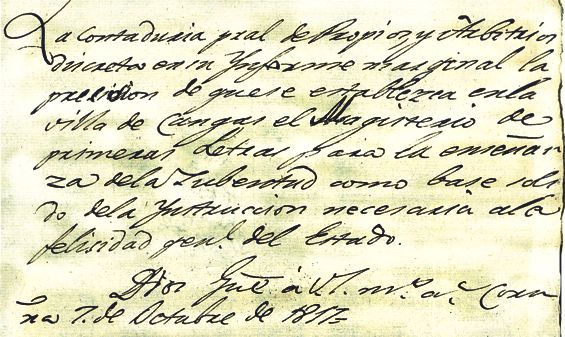 La contaduria pral de Propios, y Arbitrios
discreta en su Ynforme marginal la
precision de que se establezca en la
villa de Cangas el Magisterio de
primeras Letras para la enseñan
za de la Jubentud como base soli
do dela Ynstruccion necesaria ala
felicidad genl. del Estado.
Dios gue. à V.S. ms. as. Coru
ña 7. de Octubre de 1817.